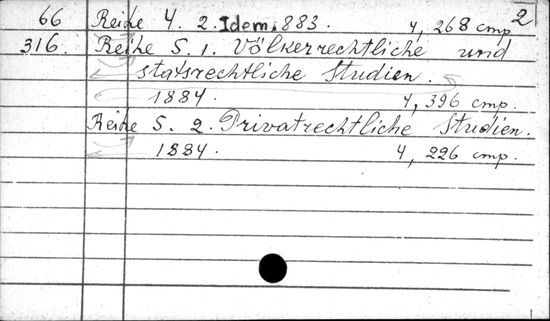 2
66 Reihe 4. 2. Idem. 883. 4, 268 стр
316. Reihe 5. 1. Völkerrechtliche und
statsrechtliche Studien.
1884. 4, 396 стр.
Reihe 5. 2. Privatrechtliche Studien.
1884. 4, 226 стр.